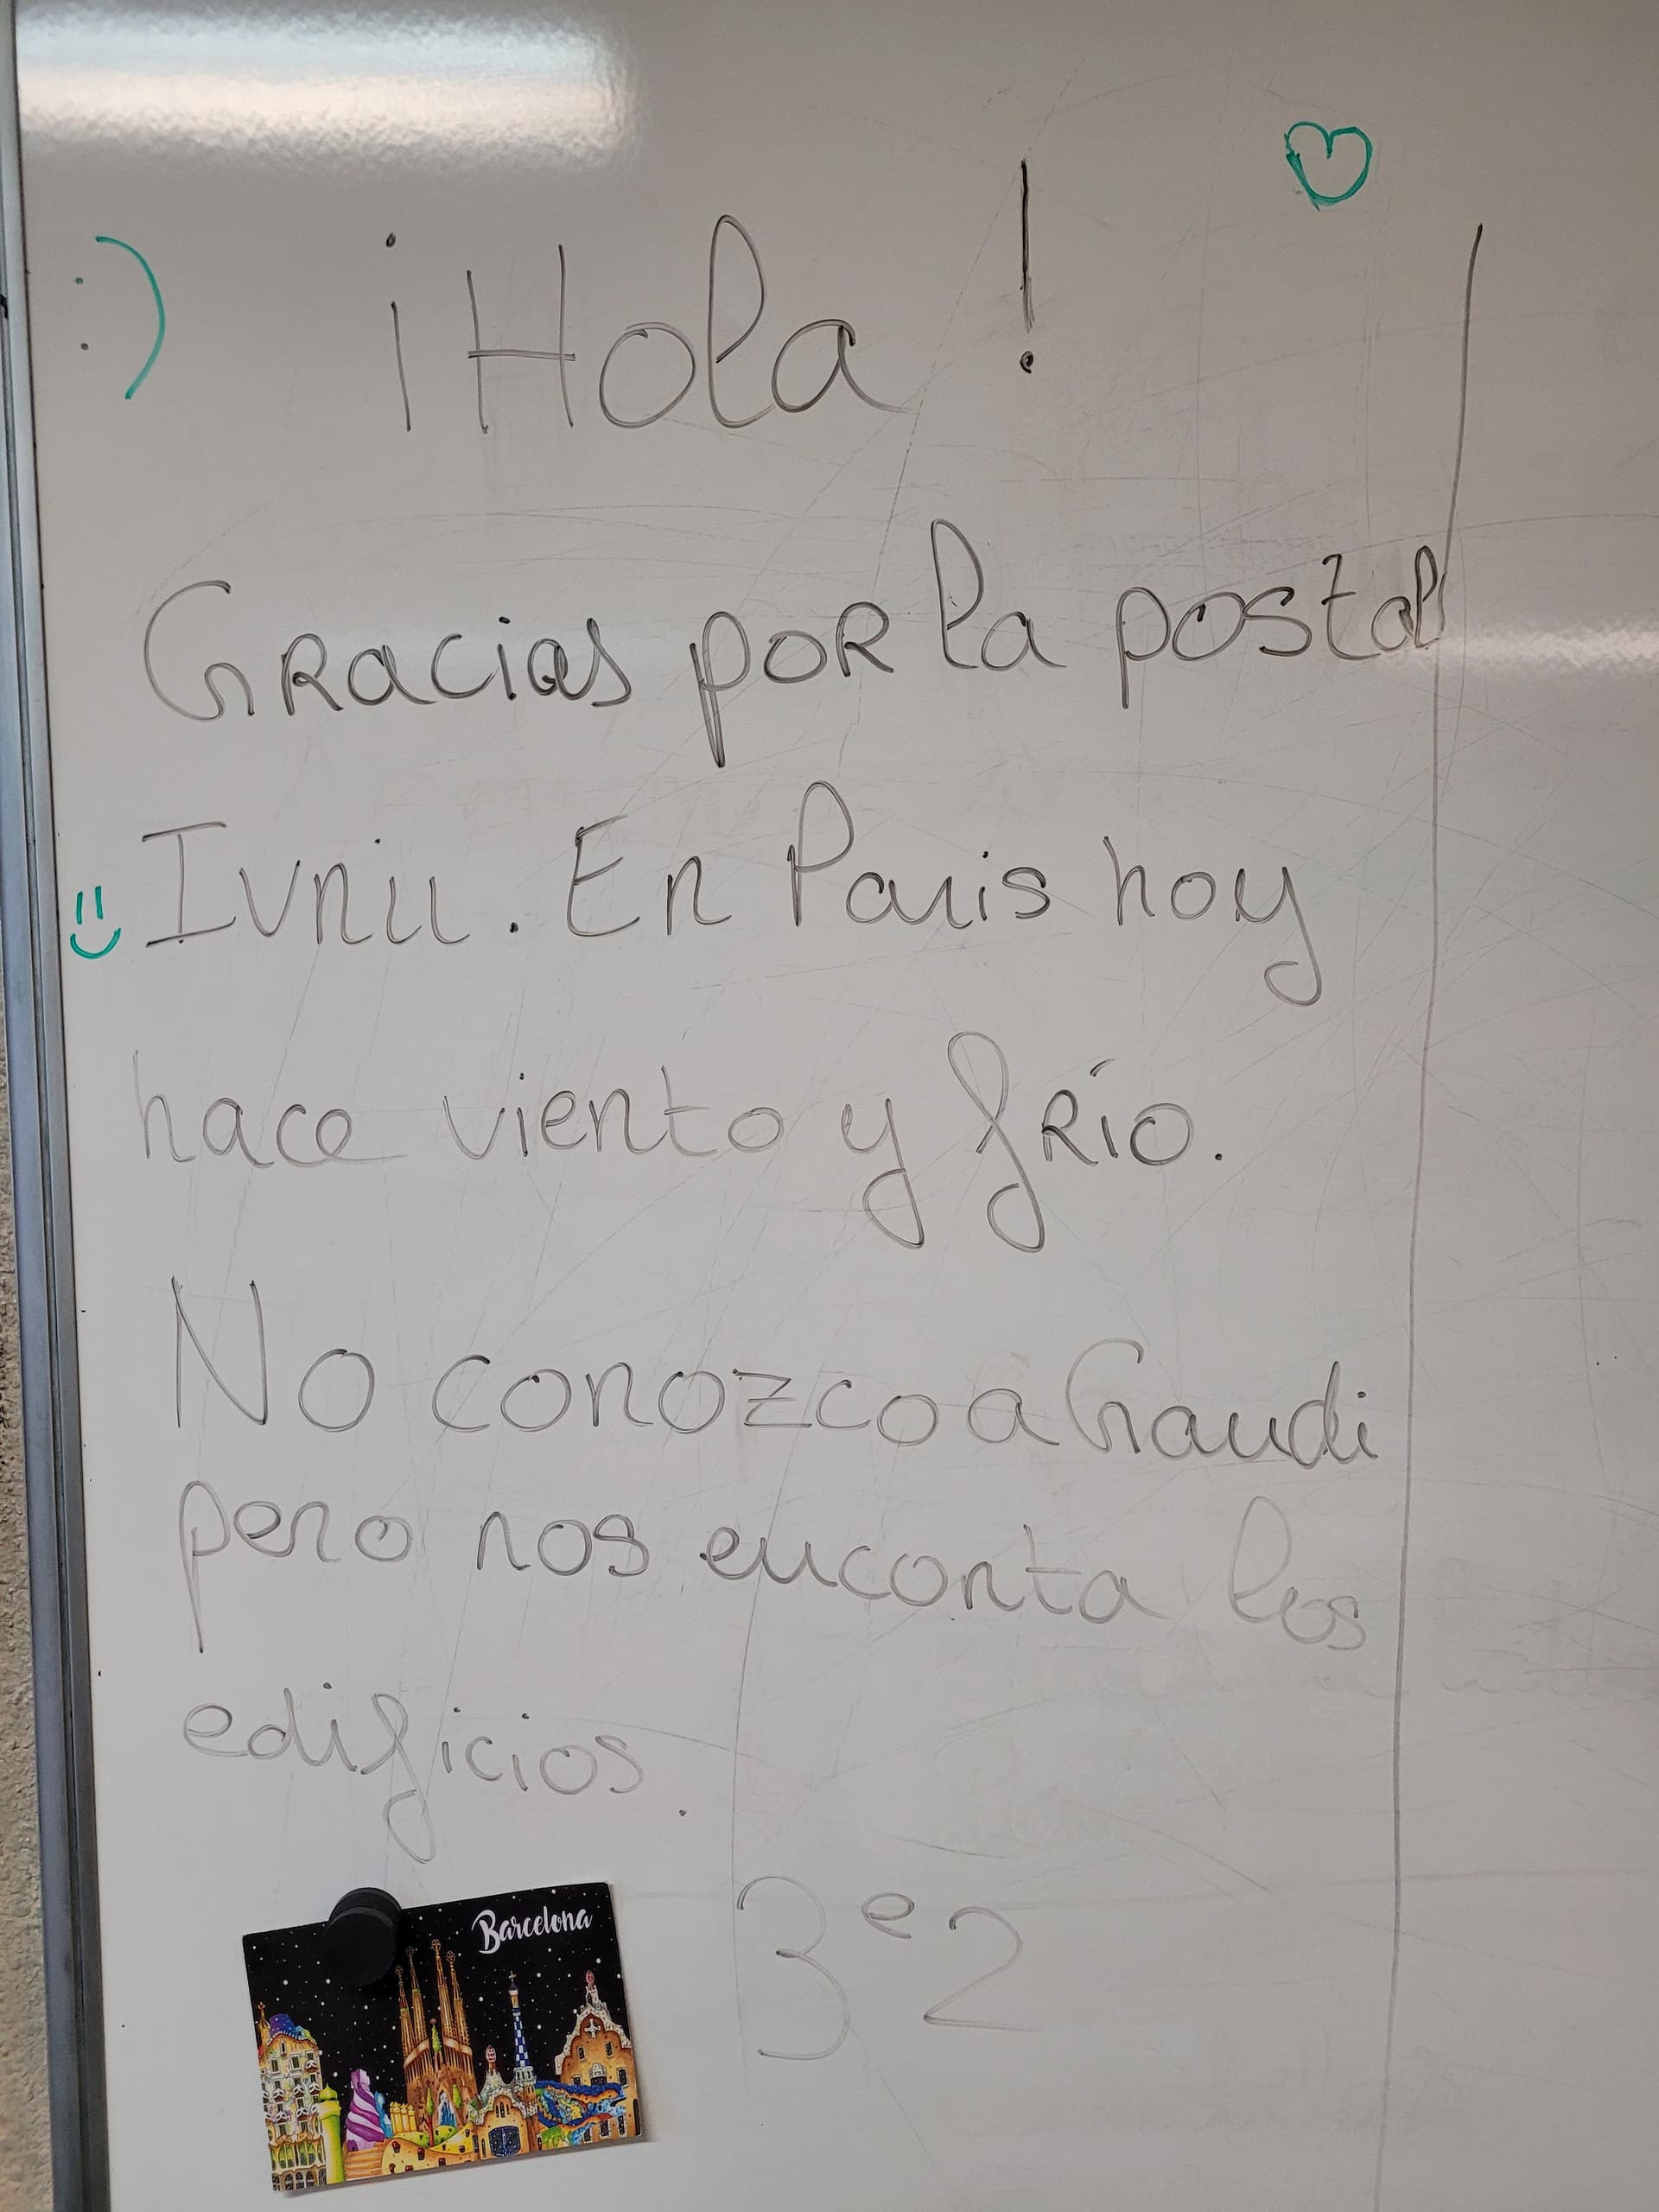 :) ¡Hola !
Gracias por la postal
Ivnu. En Paris hoy
hace viento y frío.
No conozco a Gaudi
pero nos euconta los
edificios.
3e2
Barcelona